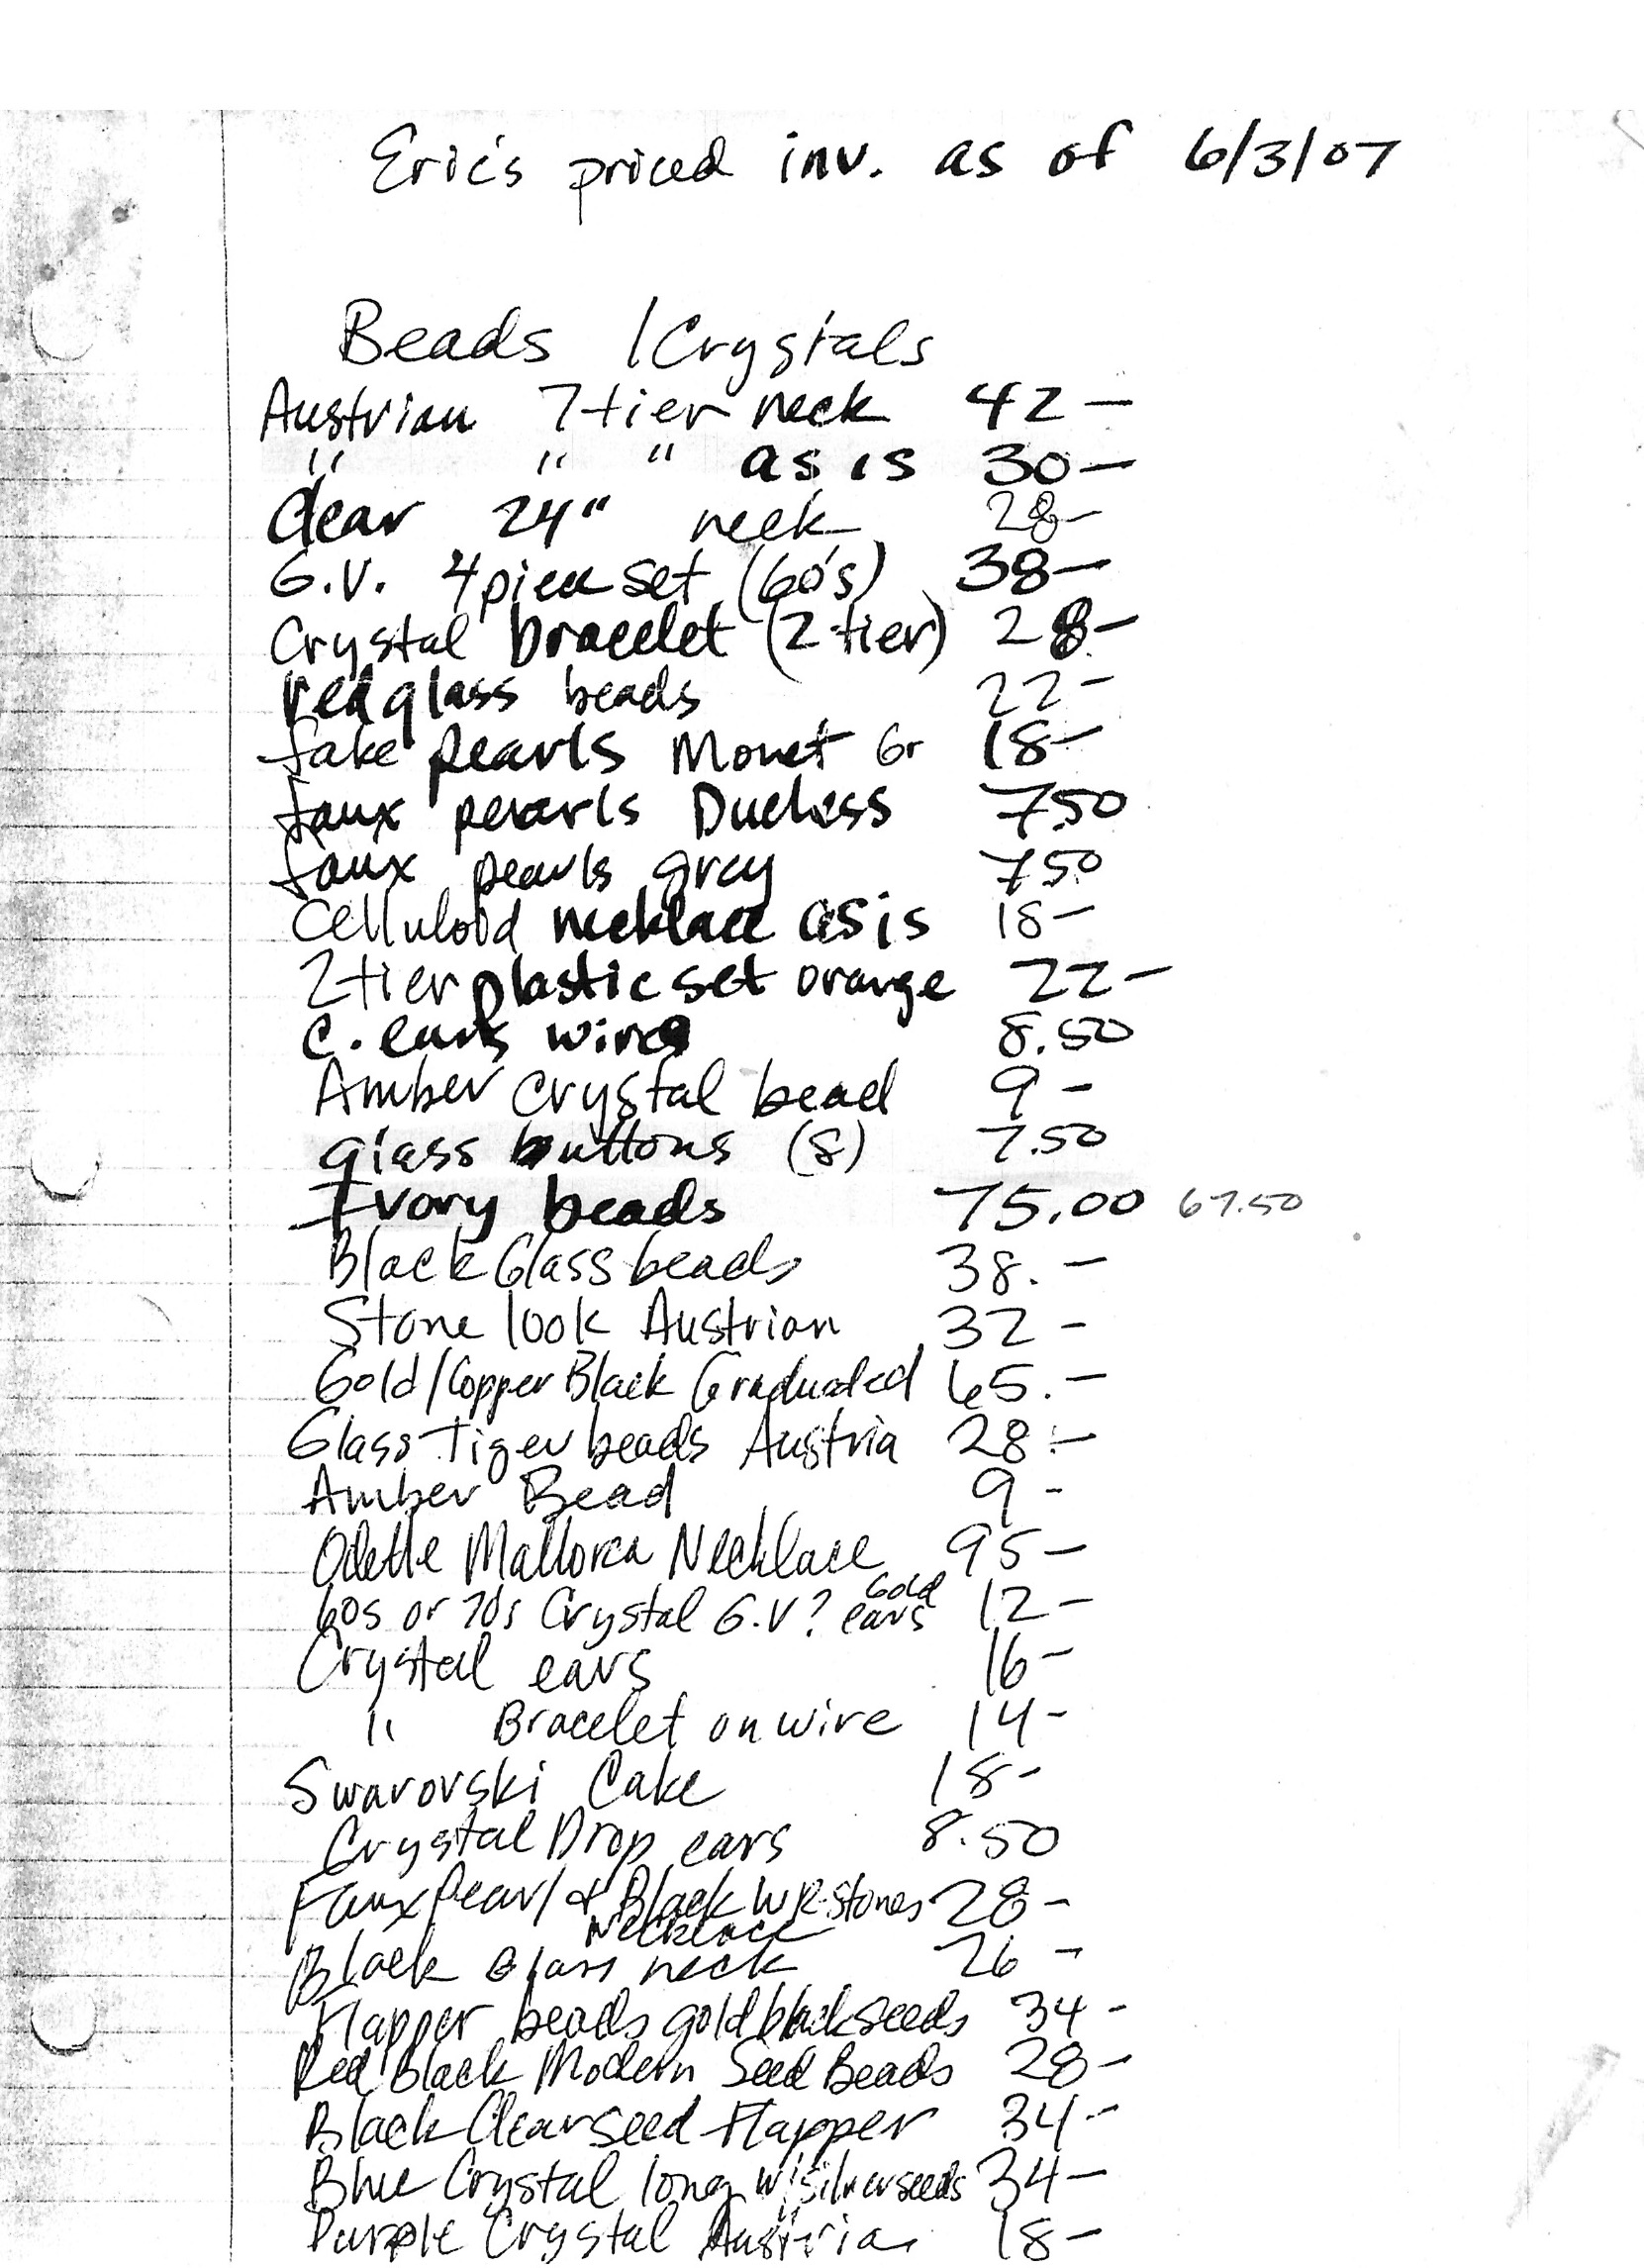 Eric's priced inv. as of 6/3/07
Beads / Crystals
Austrian 7 tier neck 42 —
" " " as is 30 —
Clear 24" neck 28 —
G.V. 4 piece set (60's) 38 —
Crystal bracelet (2 tier) 28 —
red glass beads 22 —
fake pearls Monet Gr 18 —
faux pearls Duchess 7.50
faux pearls grey 7.50
Celluloid necklace as is 18 —
2 tier plastic set orange 22 —
C. ears wire 8.50
Amber crystal bead 9 —
glass buttons (8) 7.50
Ivory beads 75.00 67.50
Black Glass beads 38. —
Stone look Austrian 32 —
Gold/Copper Black Graduated 65. —
Glass Tiger beads Austria 28. —
Amber Bead 9 -
Odette Mallorca Necklace 95 —
60s or 70s Crystal G.V? Gold ears 12 —
Crystal ears 16 —
" Bracelet on wire 14 -
Swarovski Cake 18 -
Crystal Drop ears 8.50
Faux Pearl & Black w R-stones 28 -
Necklace
Black Glass neck 26 -
Flapper beads gold black seeds 34 -
Red Black Modern Seed Beads 28 -
Black Clear seed Flapper 34 -
Blue Crystal long w/silver seeds 34 —
Purple Crystal Austria 18 —